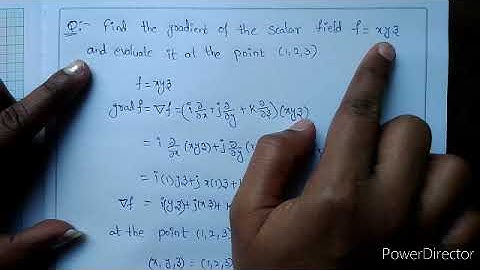 Q:- Find the gradient of the scalar field f = xyz
and evaluate it at the point (1,2,3)
f = xyz
grad f = ∇f = (i ∂/∂x + j ∂/∂y + k ∂/∂z) (xyz)
= i ∂/∂x (xyz) + j ∂/∂y (
= i(1)yz + j x(1)z +
∇f = i(yz) + j(xz) +
at the point (1,2,3)
(x,y,z) = (1,2,
PowerDirector